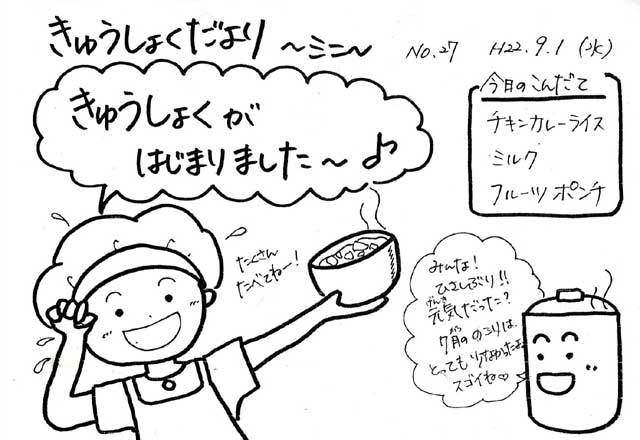 きゅうしょくだより ～ミニ～ No.27 H22.9.1(水)
きゅうしょくが
はじまりました～♪
今日のこんだて
チキンカレーライス
ミルク
フルーツポンチ
たくさん
たべてねー!
みんな!
ひさしぶり!!
元気だった?
げんき
7月ののこりは、
がつ
とっても少なかったよ。
スゴイね♡